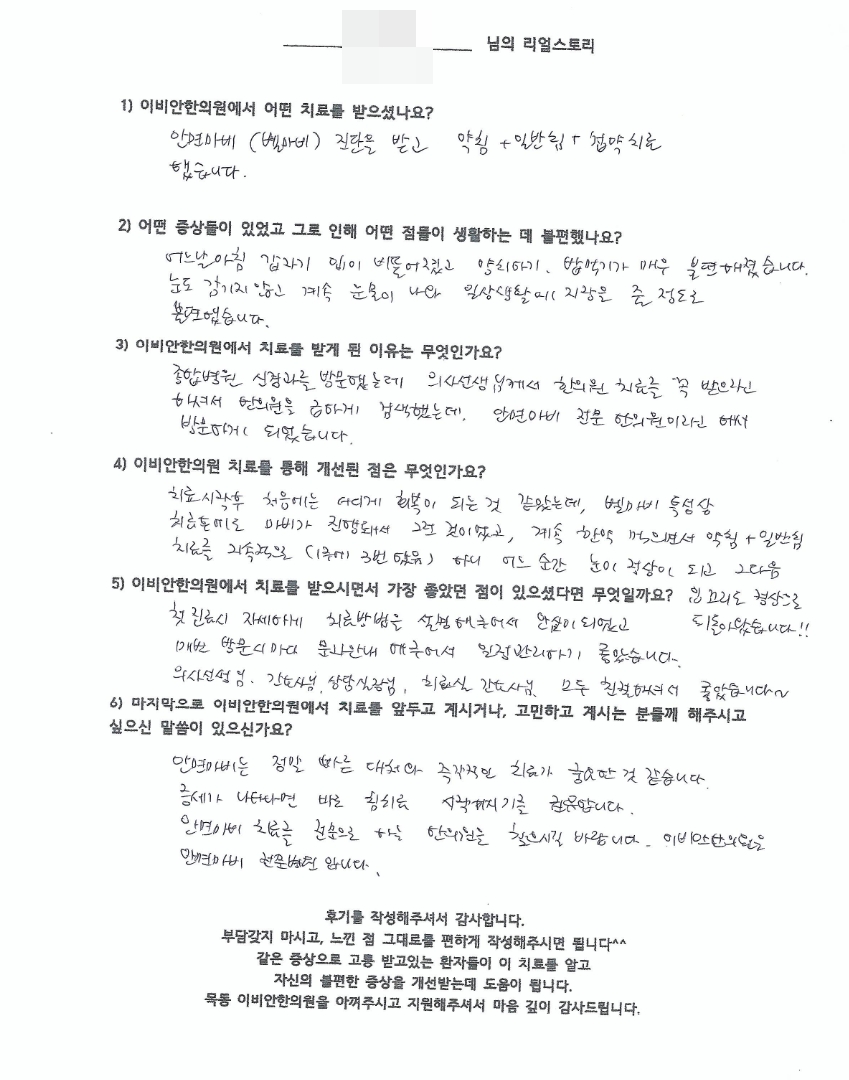 님의 리얼스토리
1) 이비안한의원에서 어떤 치료를 받으셨나요?
안면마비 (벨마비) 진단을 받고 약침 + 일반침 + 첩약치료
했습니다.
2) 어떤 증상들이 있었고 그로 인해 어떤 점들이 생활하는 데 불편했나요?
어느날 아침 갑자기 입이 비뚤어졌고 양치하기, 밥먹기가 매우 불편해졌습니다.
눈도 감기지 않고 계속 눈물이 나와 일상생활에 지장을 줄 정도로
불편했습니다.
3) 이비안한의원에서 치료를 받게 된 이유는 무엇인가요?
종합병원 신경과를 방문했는데 의사선생님께서 한의원 치료를 꼭 받으라신
해셔서 한의원을 급하게 검색했는데, 안면마비 전문 한의원이라신 해서
방문하게 되었습니다.
4) 이비안한의원 치료를 통해 개선된 점은 무엇인가요?
치료시작후 처음에는 더디게 회복이 되는 것 같았는데, 벨마비 특성상
치료중에도 마비가 진행돼서 그런 것이었고, 계속 한약 먹으면서 약침 + 일반침
치료를 지속적으로 (1주에 3번 했음) 하니 어느 순간 눈이 정상이 되고 그다음
5) 이비안한의원에서 치료를 받으시면서 가장 좋았던 점이 있으셨다면 무엇일까요? 입꼬리도 정상으로
첫 진료시 자세하게 치료방법을 설명해주어서 안심이 되었고 되돌아왔습니다!!
매번 방문시마다 문자안내 해주어서 일정관리하기 좋았습니다.
의사선생님, 간호사님, 상담실장님, 치료실 간호사님 모두 친절하셔서 좋았습니다~
6) 마지막으로 이비안한의원에서 치료를 앞두고 계시거나, 고민하고 계시는 분들께 해주시고
싶으신 말씀이 있으신가요?
안면마비는 정말 빠른 대처와 즉각적인 치료가 중요한 것 같습니다.
증세가 나타나면 바로 침치료 시작하기를 권유합니다.
안면마비 치료를 전문으로 하는 한의원을 찾으시길 바랍니다. 이비안한의원은
안면마비 전문병원 입니다.
후기를 작성해주셔서 감사합니다.
부담갖지 마시고, 느낀 점 그대로를 편하게 작성해주시면 됩니다^^
같은 증상으로 고통 받고있는 환자들이 이 치료를 알고
자신의 불편한 증상을 개선받는데 도움이 됩니다.
목동 이비안한의원을 아껴주시고 지원해주셔서 마음 깊이 감사드립니다.